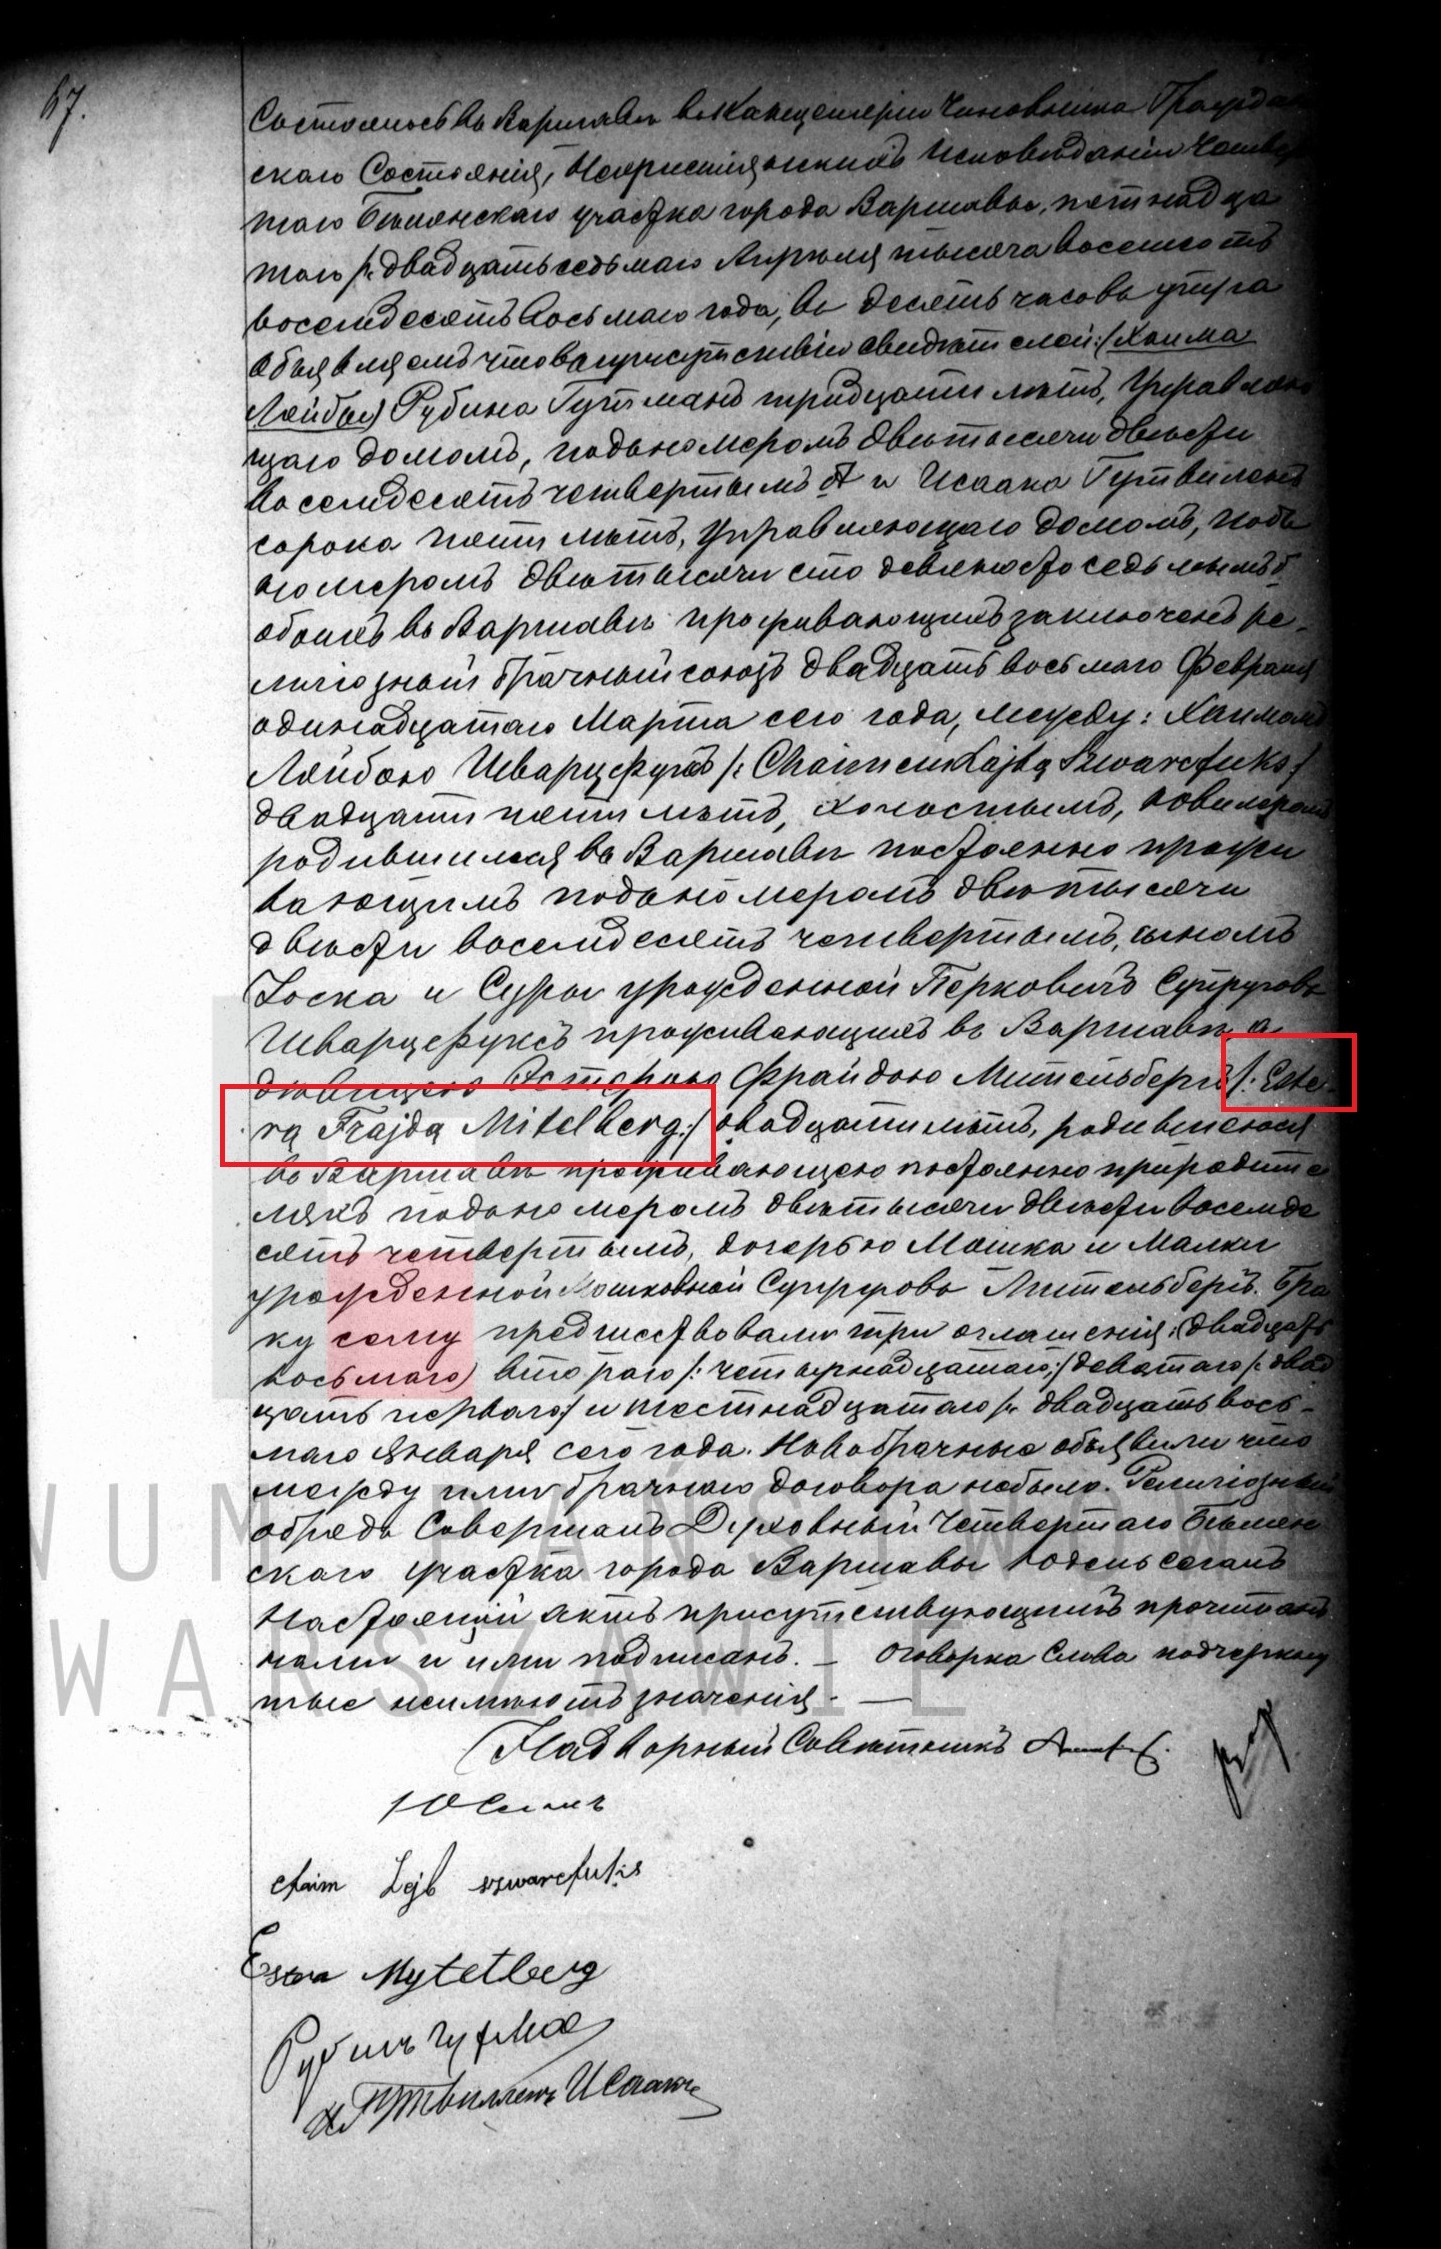 67.
Состоялось въ Варшавѣ въ Канцеляріи Чиновника Граждан
скаго Состоянія, Нехристіянскихъ Исповѣданій Четвер
таго Бѣлянскаго участка города Варшавы, пятнадца
таго /: двадцать седьмаго Апрѣля тысяча восемьсотъ
восемдесятъ восьмаго года, въ десять часовъ утра
Объявляемъ что въ присутствіи свидѣтелей: /Хаима
Лейбы) Рубина Гутманъ тридцати лѣтъ, Управляю
щаго домомъ, подъ номеромъ двѣ тысячи двѣсти
восемдесятъ четвертымъ А и Исаака Гутвиленъ
сорока пяти лѣтъ, Управляющаго домомъ, подъ
номеромъ двѣ тысячи сто девяносто седьмымъ б
обоихъ въ Варшавѣ проживающихъ заключенъ ре-
лигіозный брачный союзъ двадцать восьмаго Февраля
одинадцатаго Марта сего года, между: Хаимомъ
Лейбою Шварцфуксъ /: Chaimem Lajbą Szwarcfuks :/
двадцати пяти лѣтъ, холостымъ, ювелиромъ
родившимся въ Варшавѣ постоянно прожи
вающимъ подъ номеромъ двѣ тысячи
двѣсти восемдесятъ четвертымъ, сыномъ
Іоска и Суры урожденной Перковичъ Супруговъ
Шварцфуксъ проживающихъ въ Варшавѣ, а
дѣвицею Эстерою Фрайдою Мительбергъ /: Este-
rą Frajdą Mitelberg :/ двадцати лѣтъ, родившеюся
въ Варшавѣ проживающею постоянно при родите
ляхъ подъ номеромъ двѣ тысячи двѣсти восемде
сятъ четвертымъ, дочерью Мошка и Малки
урожденной Мошковной Супруговъ Мительбергъ. Бра
ку сему предшествовали три оглашенія: (двадцать
восьмаго) втораго /: четырнадцатаго :/ девятаго /: двад
цать перваго :/ и шестнадцатаго /: двадцать вось-
маго Января сего года. Новобрачные объявили что
между ими брачнаго договора не было. Религіозный
обрядъ Совершалъ Духовный Четвертаго Бѣлян
скаго участка города Варшавы
Настоящій актъ присутствующимъ прочитанъ
нами и ими подписанъ. — Оговорка Слова подчеркну
тые неимѣютъ значенія. —
Надворный Совѣтникъ
Chaim Lejb szwarcfuks
Estera Mytelberg
Рубинъ Гутман
Гутвиленъ Исаакъ
WUM PAŃSTWOWE
WARSZAWIE